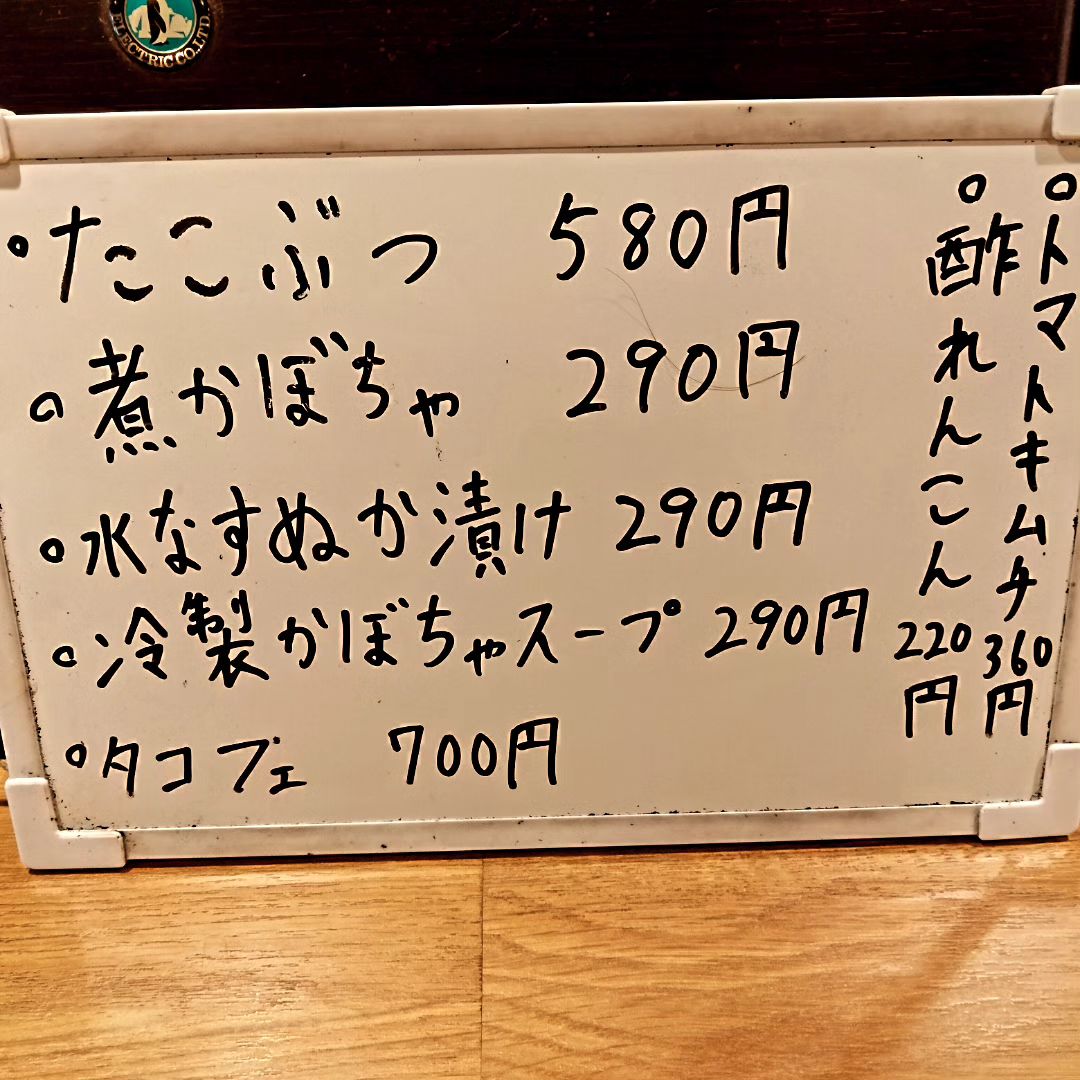 ELECTRIC CO.,LTD.
たこぶつ 580円
煮かぼちゃ 290円
水なすぬか漬け 290円
冷製かぼちゃスープ 290円
タコブェ 700円
トマトキムチ 360円
酢れんこん 220円